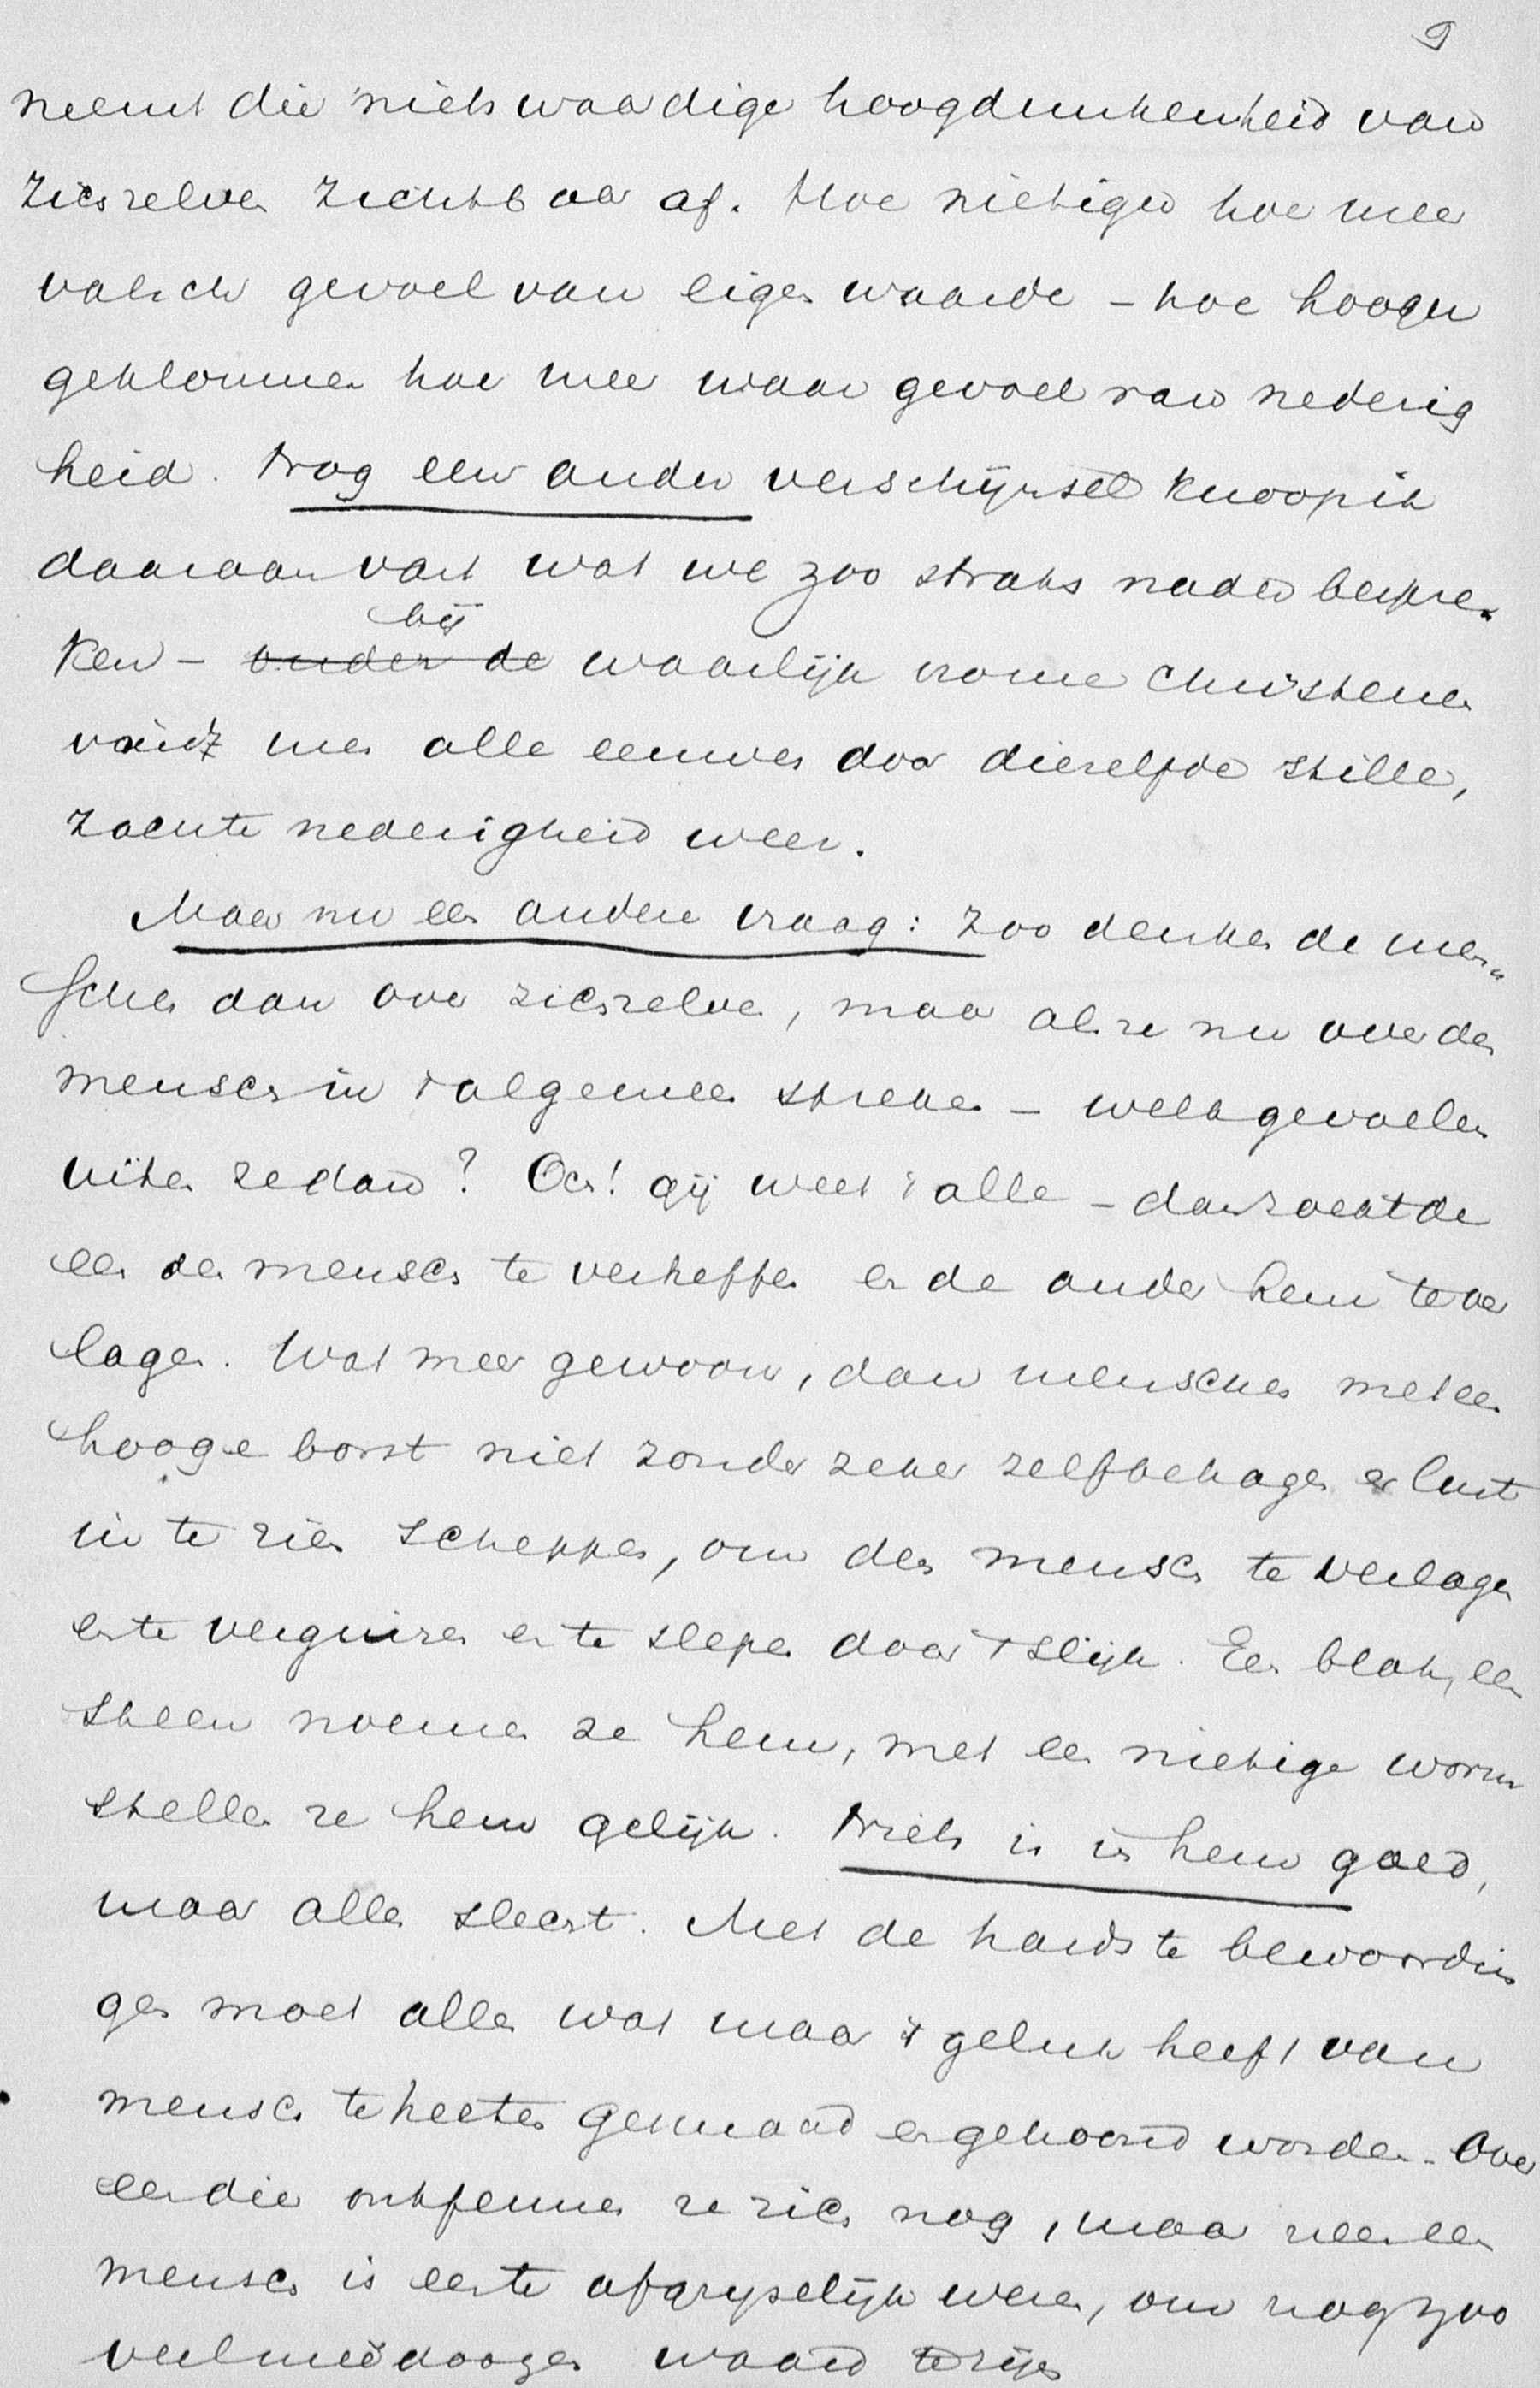 9
neemt die nietswaardige hoogdunkenheid van
zichzelven zichtbaar af. Hoe nietiger hoe meer
valsch gevoel van eigen waarde – hoe hooger
geklommen hoe meer waar gevoel van nederig
heid. Nog een ander verschijnsel knoop ik
daaraan vast wat we zoo straks nader bespre-
bij
ken – onder de waarlijk vrome Christenen
vindt men alle eeuwen door diezelfde stille,
zachte nederigheid weer.
Maar nu een andere vraag: zoo denken de men-
schen dan over zichzelven, maar als ze nu over den
mensch in 't algemeen spreken – welk gevoelen
uiten ze dan? Och! gij weet 't alle – dan zoekt de
een den mensch te verheffen en de ander hem te ver
lagen. Wat meer gewoon, dan menschen met een
hooge borst niet zonder zeker zelfbehagen er lust
in te zien scheppen, om den mensch te verlagen
en te verguizen en te slepen door 't slijk. Een blok, een
steen noemen ze hem, met een nietige worm
stellen ze hem gelijk. Niets is in hem goed,
maar alles slecht. Met de hardste bewoordin
gen moet alles wat maar 't geluk heeft van
mensch te heeten gesmaad en gehoond worden. Over
een dier ontfermen ze zich nog, maar neen een
mensch is een te afgrijselijk wezen, om nog zoo
veel mededoogen waard te zijn